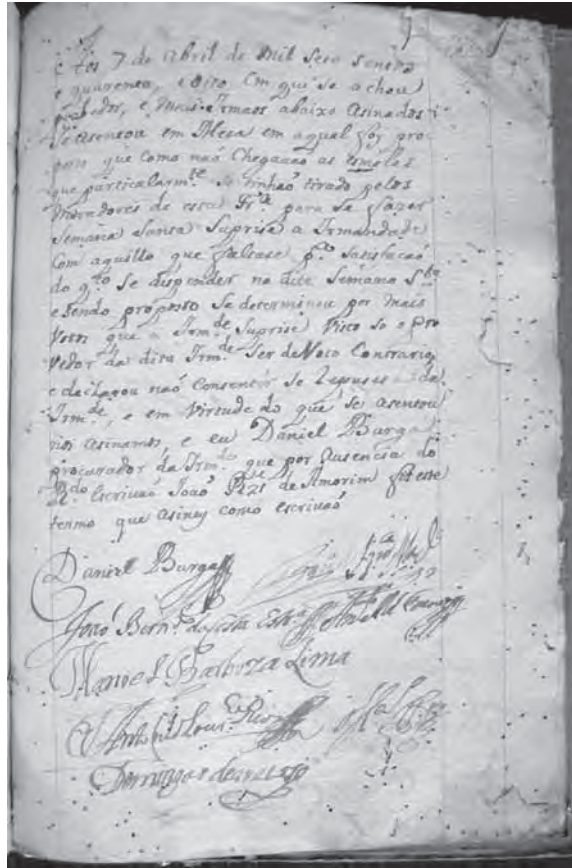 Aos 7 de Abril de Mil Sete Sentos
e quarenta, e Oito Em que se achou
probedor, e Mais Irmaos abaixo asinados
Se asentou em Mesa em aqual foy pro-
posto que como naõ Chegavaõ as esmolas
que particularm.te Se tinhaõ tirado pelos
Moradores de essa Fr.a para Se fazer
Semana Santa Suprise a Irmandade
Com aquillo que faltase p.a Satisfacaõ
do q.to Se dispender na dita Semana S.ta
e Sendo proposto Se determinou por Mais
Votos que a Irm.de Suprise Visto So o Pro
Vedor da dita Irm.de Ser de Voto Contrario
e declarou naõ Consentir Se da
Irm.de, e em Virtude do que Se asentou
nos asinamos, e eu Daniel Barga
procurador da Irm.de que por Ausencia do
R.do Escrivaõ Joaõ de Amorim fis este
termo que asiney como escrivaõ
Daniel Barga
Joaõ Bern.do da Costa
Manoel Barboza Lima
Domingos